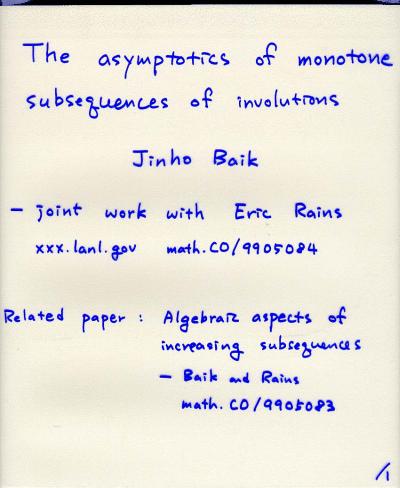 The asymptotics of monotone
subsequences of involutions
Jinho Baik
- joint work with Eric Rains
xxx.lanl.gov math.CO/9905084
Related paper : Algebraic aspects of
increasing subsequences
- Baik and Rains
math.CO/9905083
/1